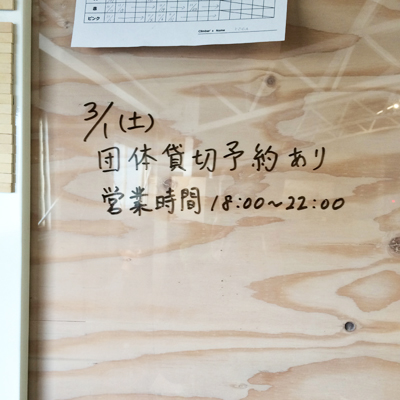 ピンク
3/1(土)
団体貸切予約あり
営業時間 18:00~22:00